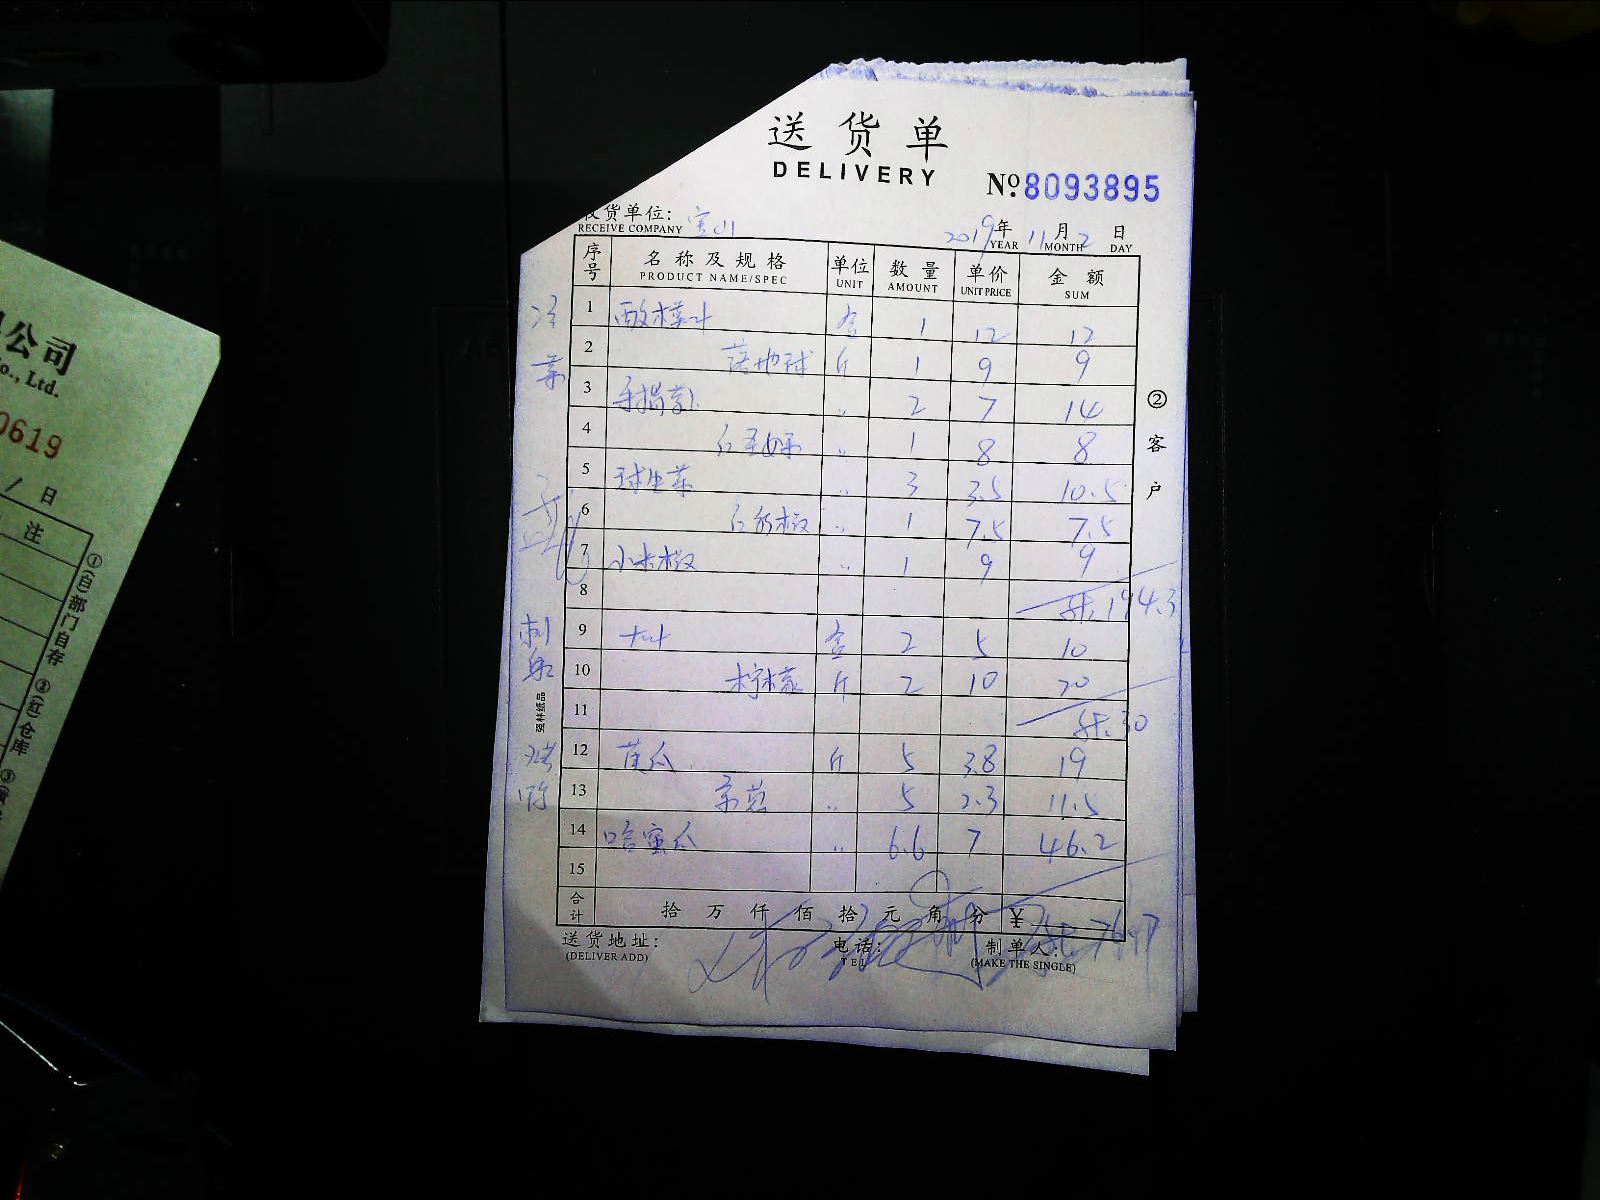 送货单
DELIVERY
№8093895
收货单位: 宝山
RECEIVE COMPANY
2019年 11月 2日
YEAR MONTH DAY
序号 名称及规格 单位 数量 单价 金额
PRODUCT NAME/SPEC UNIT AMOUNT UNIT PRICE SUM
冷菜
1 酸模叶 盒 1 12 12
2 落地球 斤 1 9 9
3 手揭 〃 2 7 14
4 红圣女果 〃 1 8 8
5 球生菜 〃 3 3.5 10.5
6 红彩椒 〃 1 7.5 7.5
7 小米椒 〃 1 9 9
8 194.3
刺身
9 大叶 盒 2 5 10
10 柠檬 斤 2 10 20
11 30
12 黄瓜 斤 5 3.8 19
13 〃 5 2.3 11.5
14 哈蜜瓜 〃 6.6 7 46.2
15
合计 拾 万 仟 佰 拾 元 角 分 ¥
76.7
送货地址:
(DELIVER ADD)
电话:
TEL
制单人:
(MAKE THE SINGLE)
②客户
强林纸品
公司
Co., Ltd.
0619
/ 日
注
①(白)部门自存 ②(红)仓库 ③(